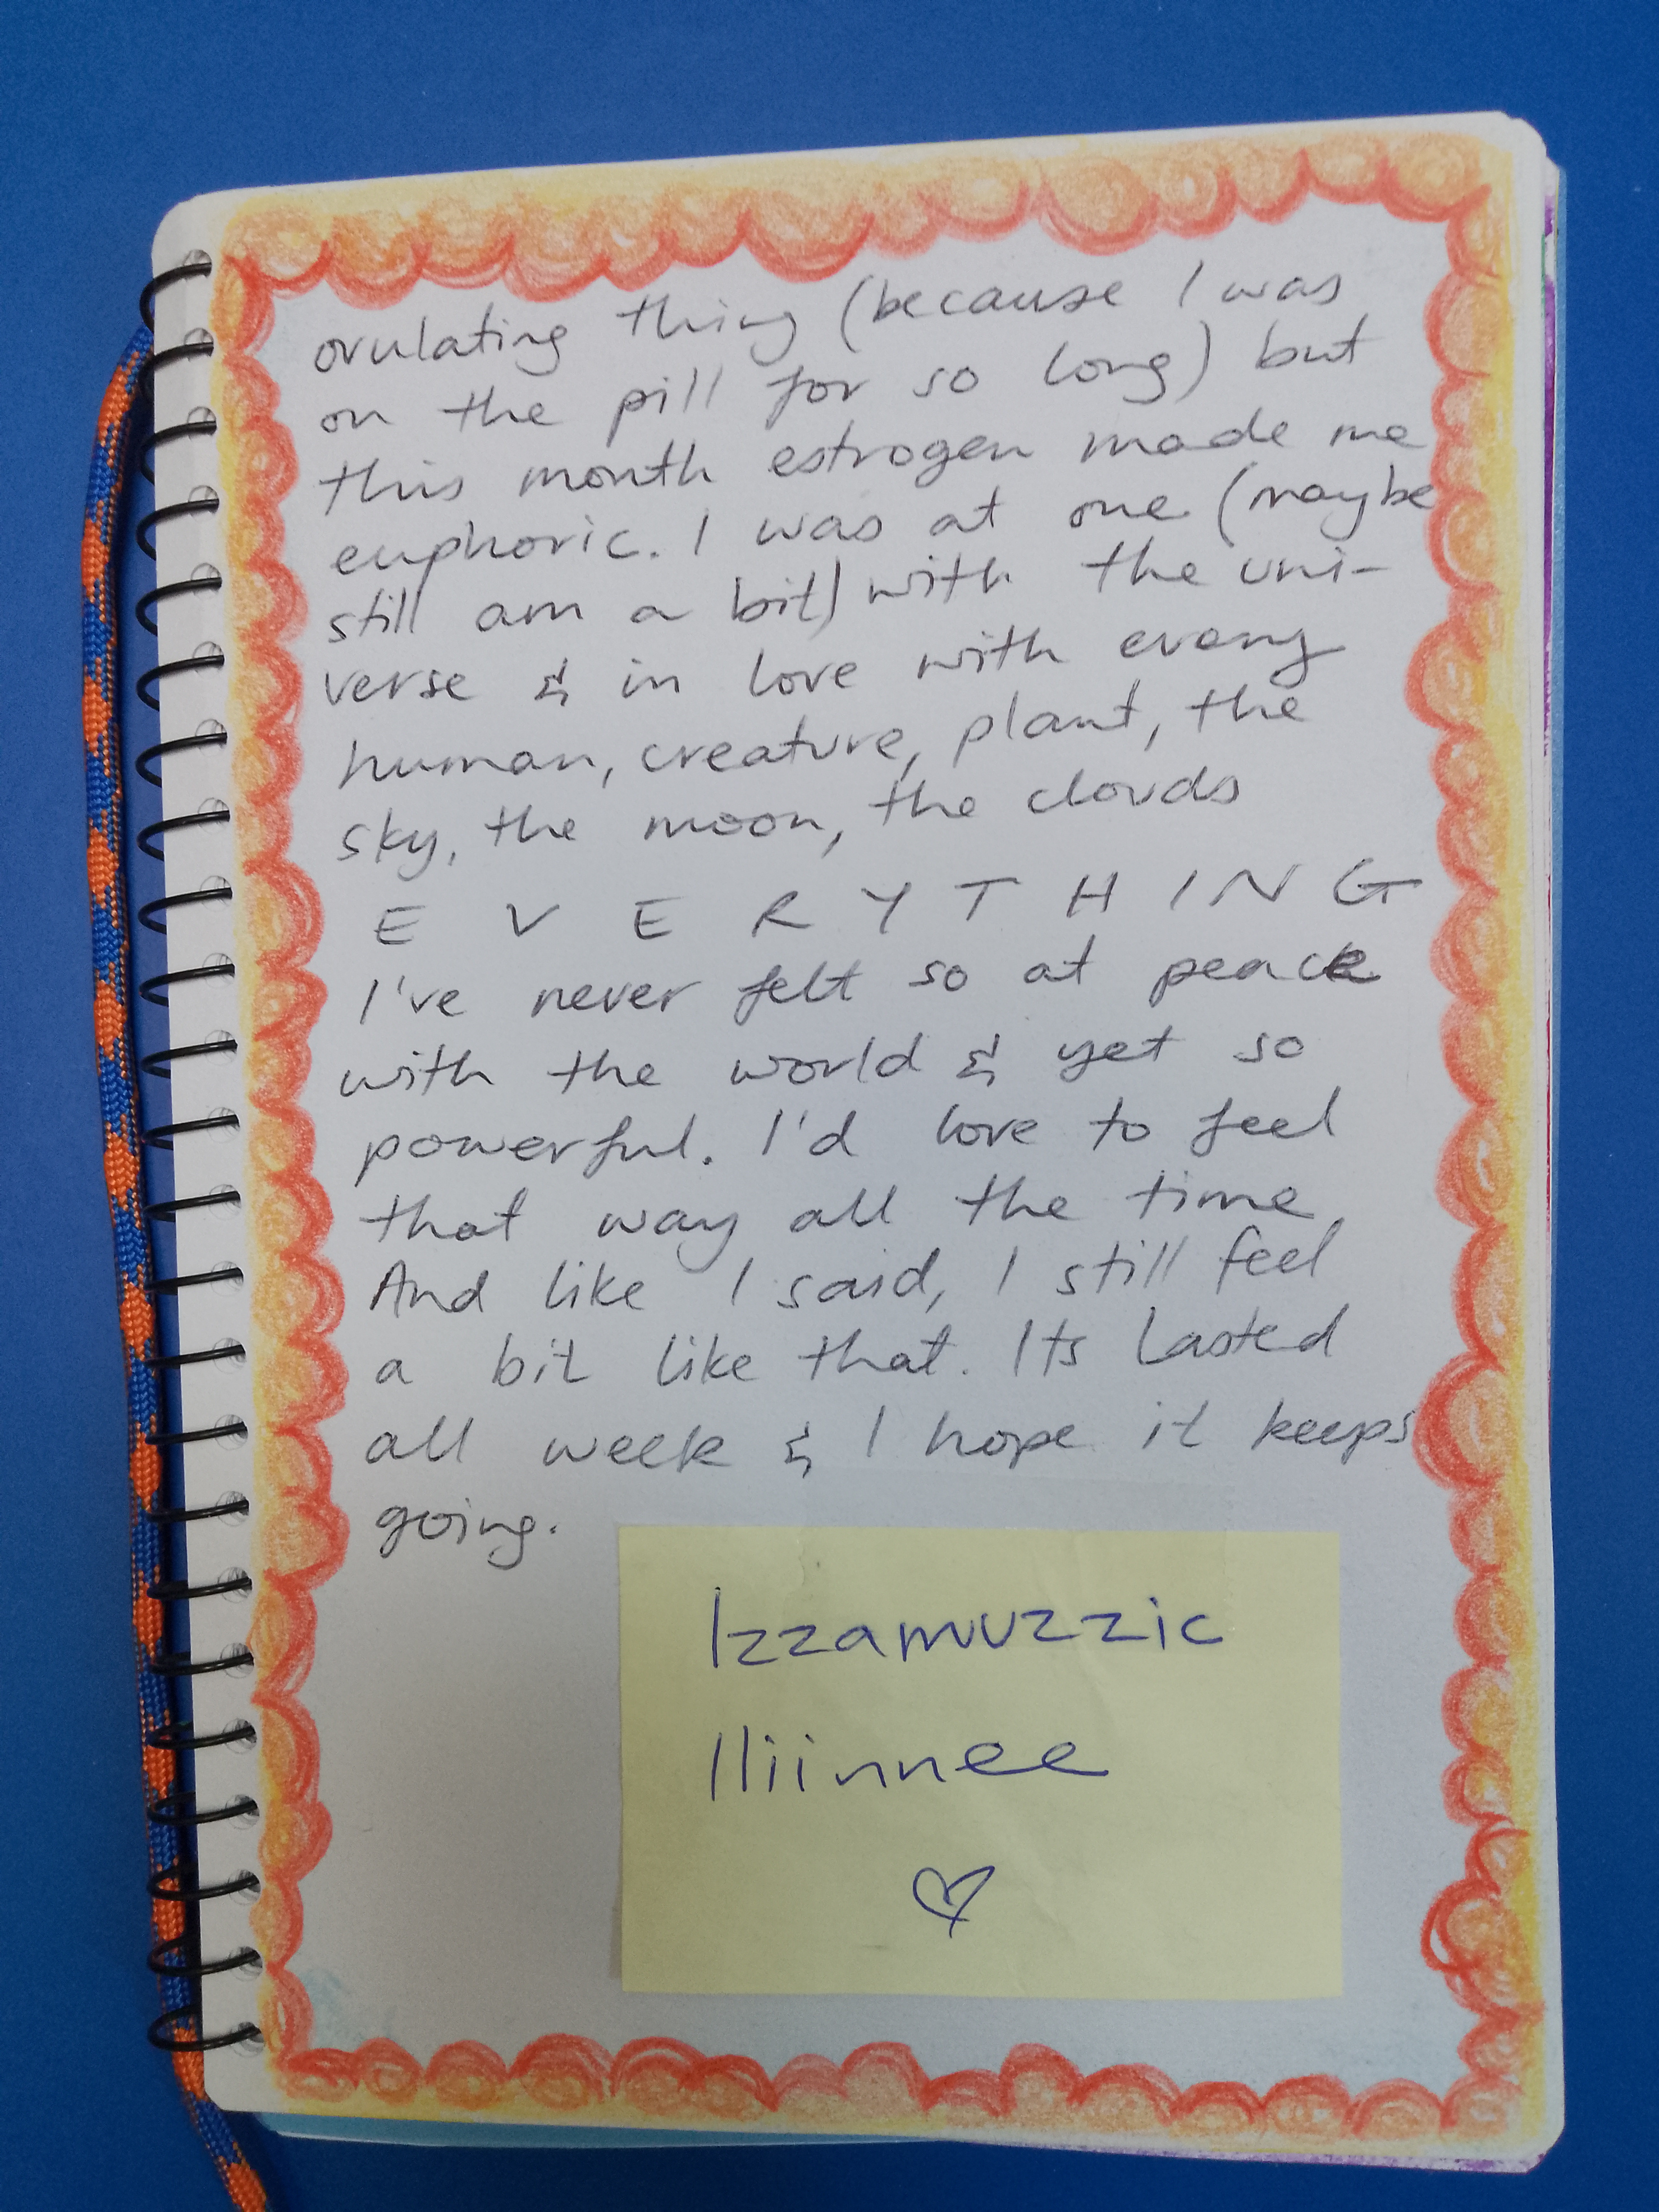 ovulating thing (because I was
on the pill for so long) but
this month estrogen made me
euphoric. I was at one (maybe
still am a bit) with the uni-
verse & in love with every
human, creature, plant, the
sky, the moon, the clouds
E V E R Y T H I N G
I've never felt so at peace
with the world & yet so
powerful. I'd love to feel
that way all the time.
And like I said, I still feel
a bit like that. Its lasted
all week & I hope it keeps
going.
Izzamuzzic
lliinnee
♡